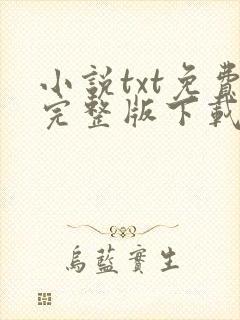 小說txt免費
完整版下載
烏藍實生